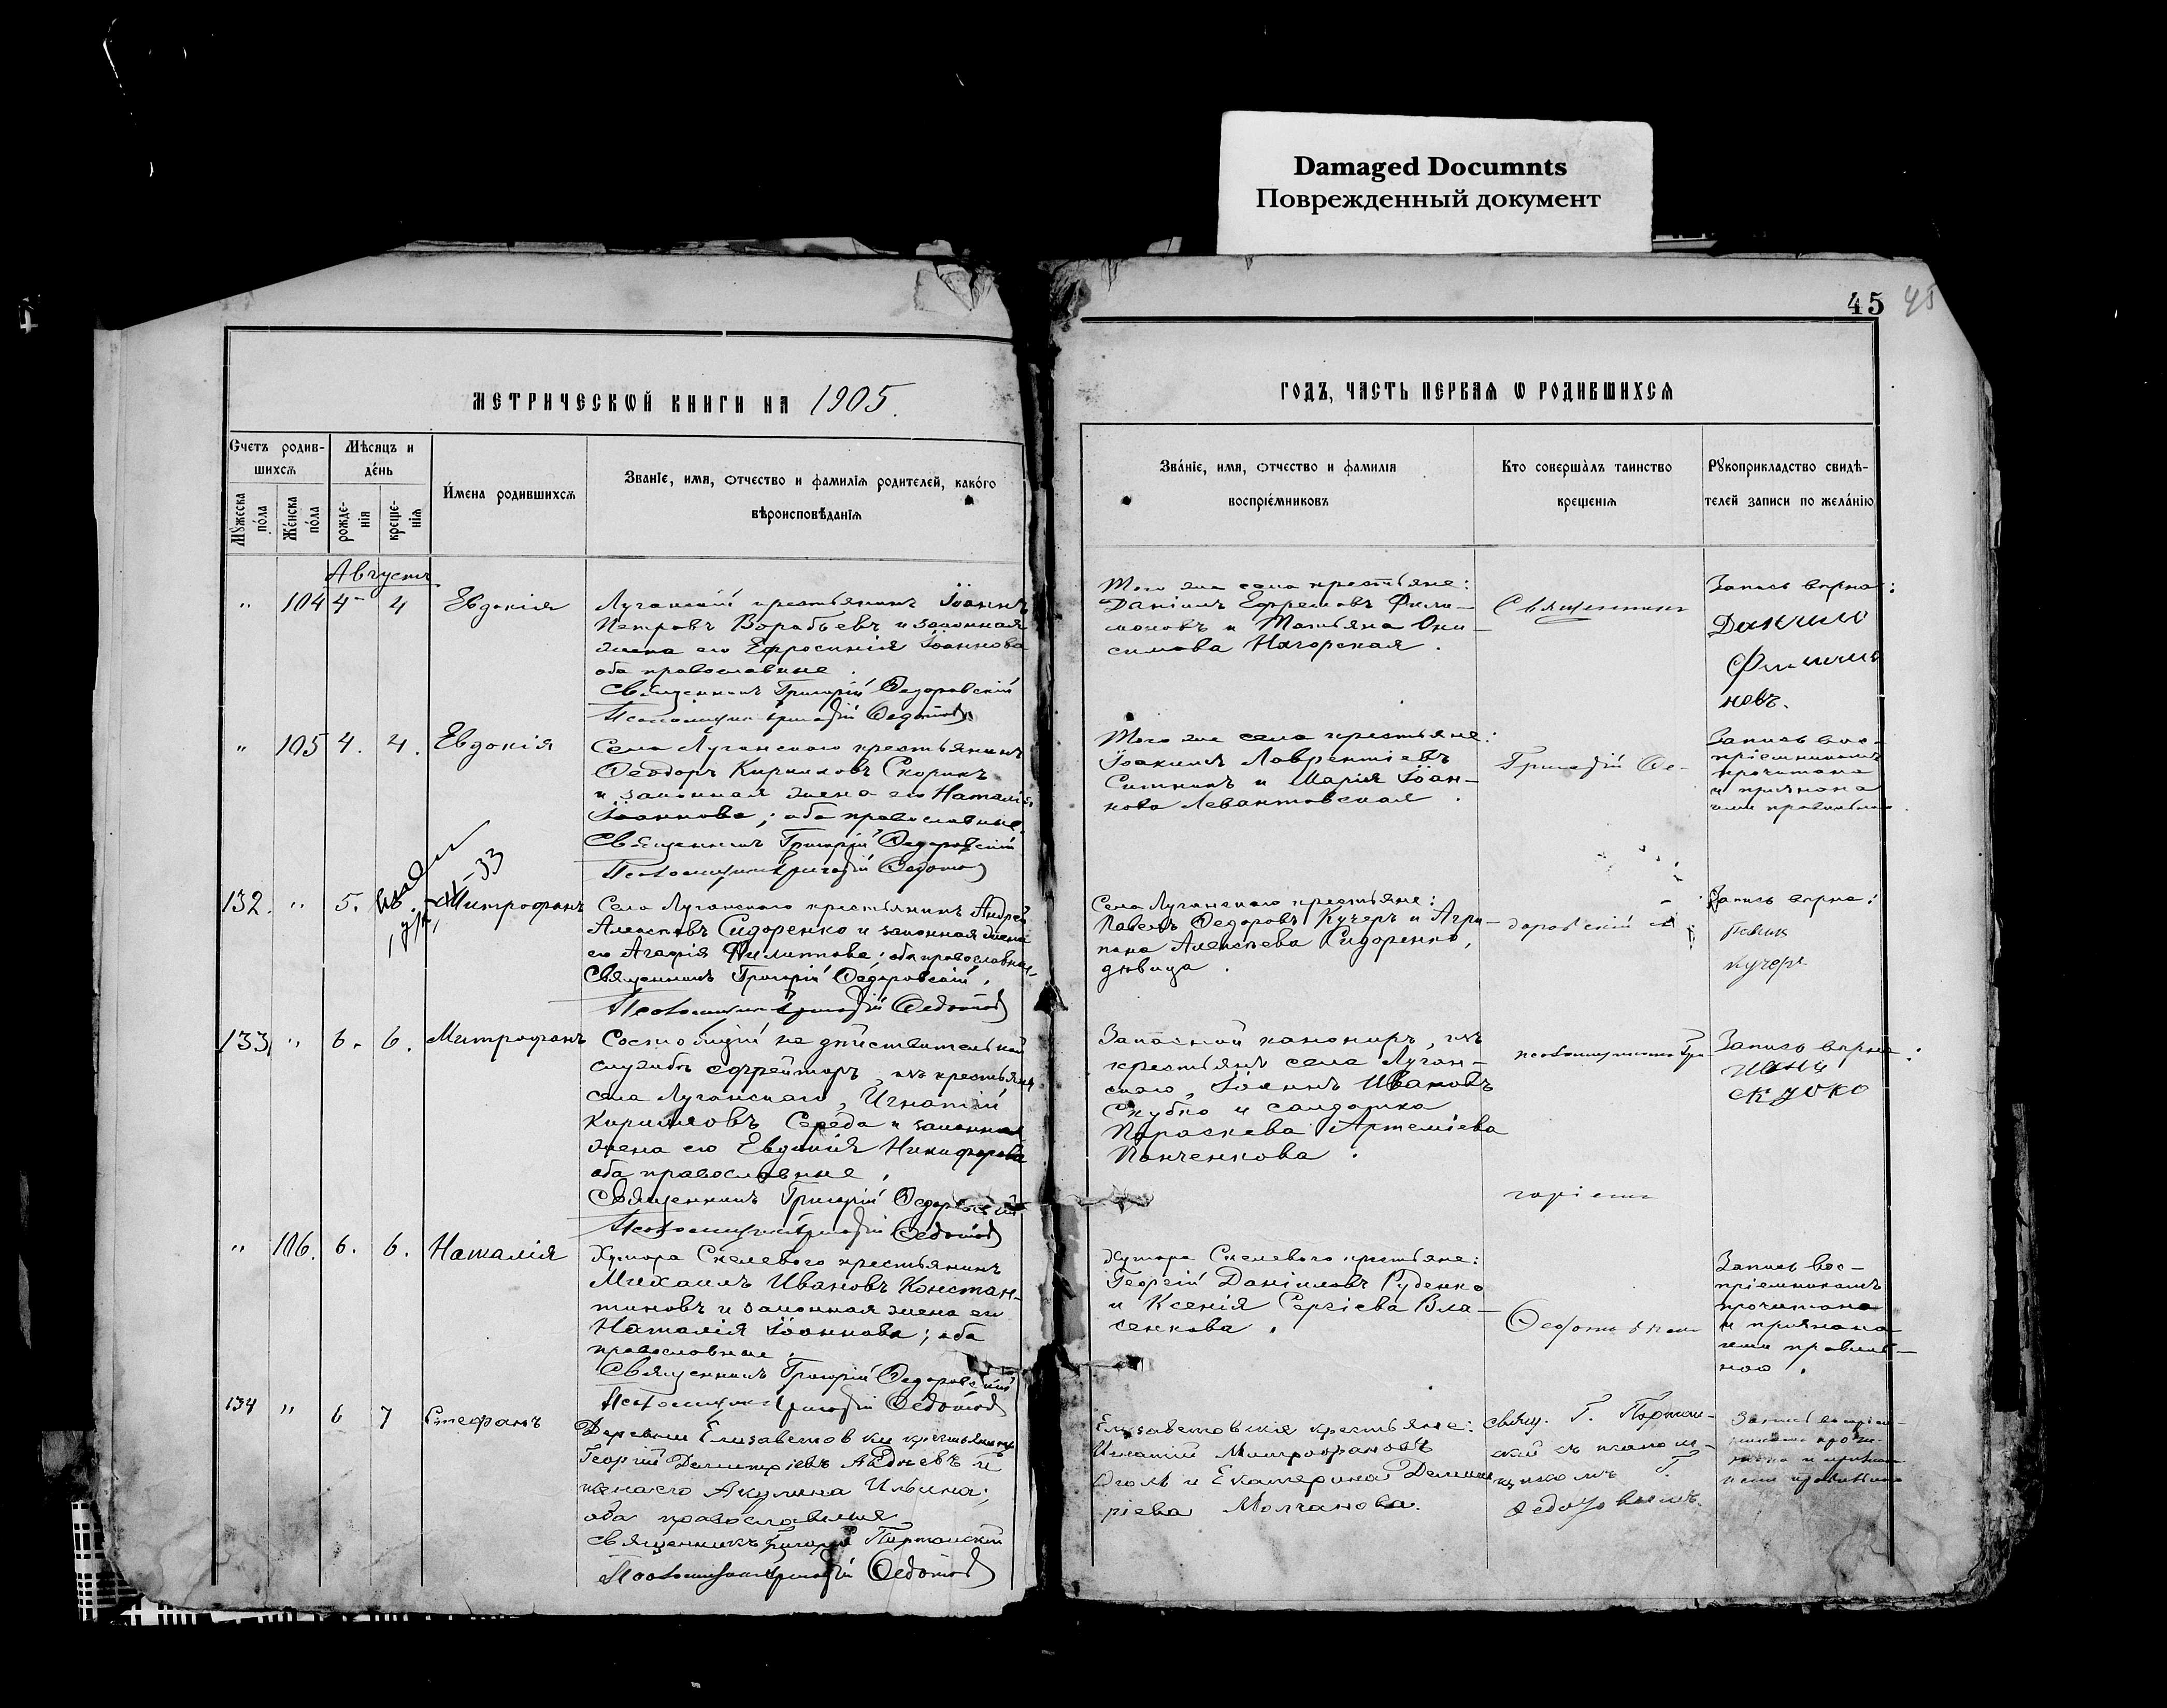 Damaged Documnts
Поврежденный документ
45 45
МЕТРИЧЕСКѠЙ КНИГИ НА 1905.
ГОДЪ, ЧАСТЬ ПЕРВАЯ Ѡ РОДИВШИХСЯ
Счетъ родив-
шихся
Мꙋжеска
пола
Женска
пола
Мѣсяцъ и
день
рожде-
нія
креще-
нія
Имена родившихся
Званіе, имя, отчество и фамилія родителей, какого
вѣроисповѣданія
Званіе, имя, отчество и фамилія
воспріемниковъ
Кто совершалъ таинство
крещенія
Рꙋкоприкладство свидѣ-
телей записи по желанію
Августъ
" 104 4 4 Евдокія
Луганскій крестьянинъ Іоаннъ
Петровъ Воробьевъ и законная
жена его Ефросинія Іоаннова
оба православные.
Священникъ Григорій Федоровскій
Псаломщикъ Григорій Федотов
Того же села крестьяне:
Даніилъ Ефремовъ Фили-
моновъ и Татьяна Они-
симова Нагорская.
Священникъ
Запись вѣрна:
Данило
Филимо
новъ.
" 105 4. 4. Евдокія
Села Луганскаго крестьянинъ
Феодоръ Кирилловъ Скорикъ
и законная жена его Наталія
Іоаннова; оба православные.
Священникъ Григорій Федоровскій
Псаломщикъ Григорій Федотов
Того же села крестьяне:
Іоакимъ Лаврентіевъ
Ситникъ и Марія Іоан-
нова Левантовская.
Григорій Фе-
Запись вос-
пріемникамъ
прочитана
и признана
ими правильно.
132. " 5. Митрофанъ
33
Села Луганскаго крестьянинъ Андрей
Алексѣевъ Сидоренко и законная жена
его Агафія Филиппова; оба православные.
Священникъ Григорій Федоровскій.
Псаломщикъ Григорій Федотов
Села Луганскаго крестьяне:
Павелъ Федоровъ Кучеръ и Агри-
пина Алексѣева Сидоренко,
дѣвица.
доровскій съ
Запись вѣрна:
Павелъ
Кучеръ
133 " 6. 6. Митрофанъ
Состоящій на дѣйствительной
службѣ ефрейторъ, изъ крестьянъ
села Луганскаго, Игнатій
Кирилловъ Середа и законная
жена его Евдокія Никифорова
оба православные.
Священникъ Григорій Федоровскій
Псаломщикъ Григорій Федотов
Запасной канониръ, изъ
крестьянъ села Луган-
скаго, Іоаннъ Ивановъ
Скубко и солдатка
Параскева Артеміева
Панченкова.
псаломщикомъ Гри
горіемъ
Запись вѣрна:
" 106. 6. 6. Наталія
Хутора Скелевого крестьянинъ
Михаилъ Ивановъ Констан-
тиновъ и законная жена его
Наталія Іоаннова; оба
православные.
Священникъ Григорій Федоровскій
Псаломщикъ Григорій Федотов
Хутора Скелевого крестьяне:
Георгій Даніиловъ Руденко
и Ксенія Сергіева Вла-
сенкова.
Федотовымъ
Запись вос-
пріемникамъ
прочитана
и признана
ими правиль-
ною.
134 " 6 7 Стефанъ
Деревни Елизаветовки крестьянинъ
Георгій Димитріевъ Авдѣевъ и
жена его Акулина Ильина;
оба православные.
Священникъ Григорій
Псаломщикъ Григорій Федотов
Елизаветовскія крестьяне:
Игнатій Митрофановъ
и Екатерина Димит
ріева Молчанова.
свящ. Г.
съ псалом-
щикомъ Г.
Федотовымъ.